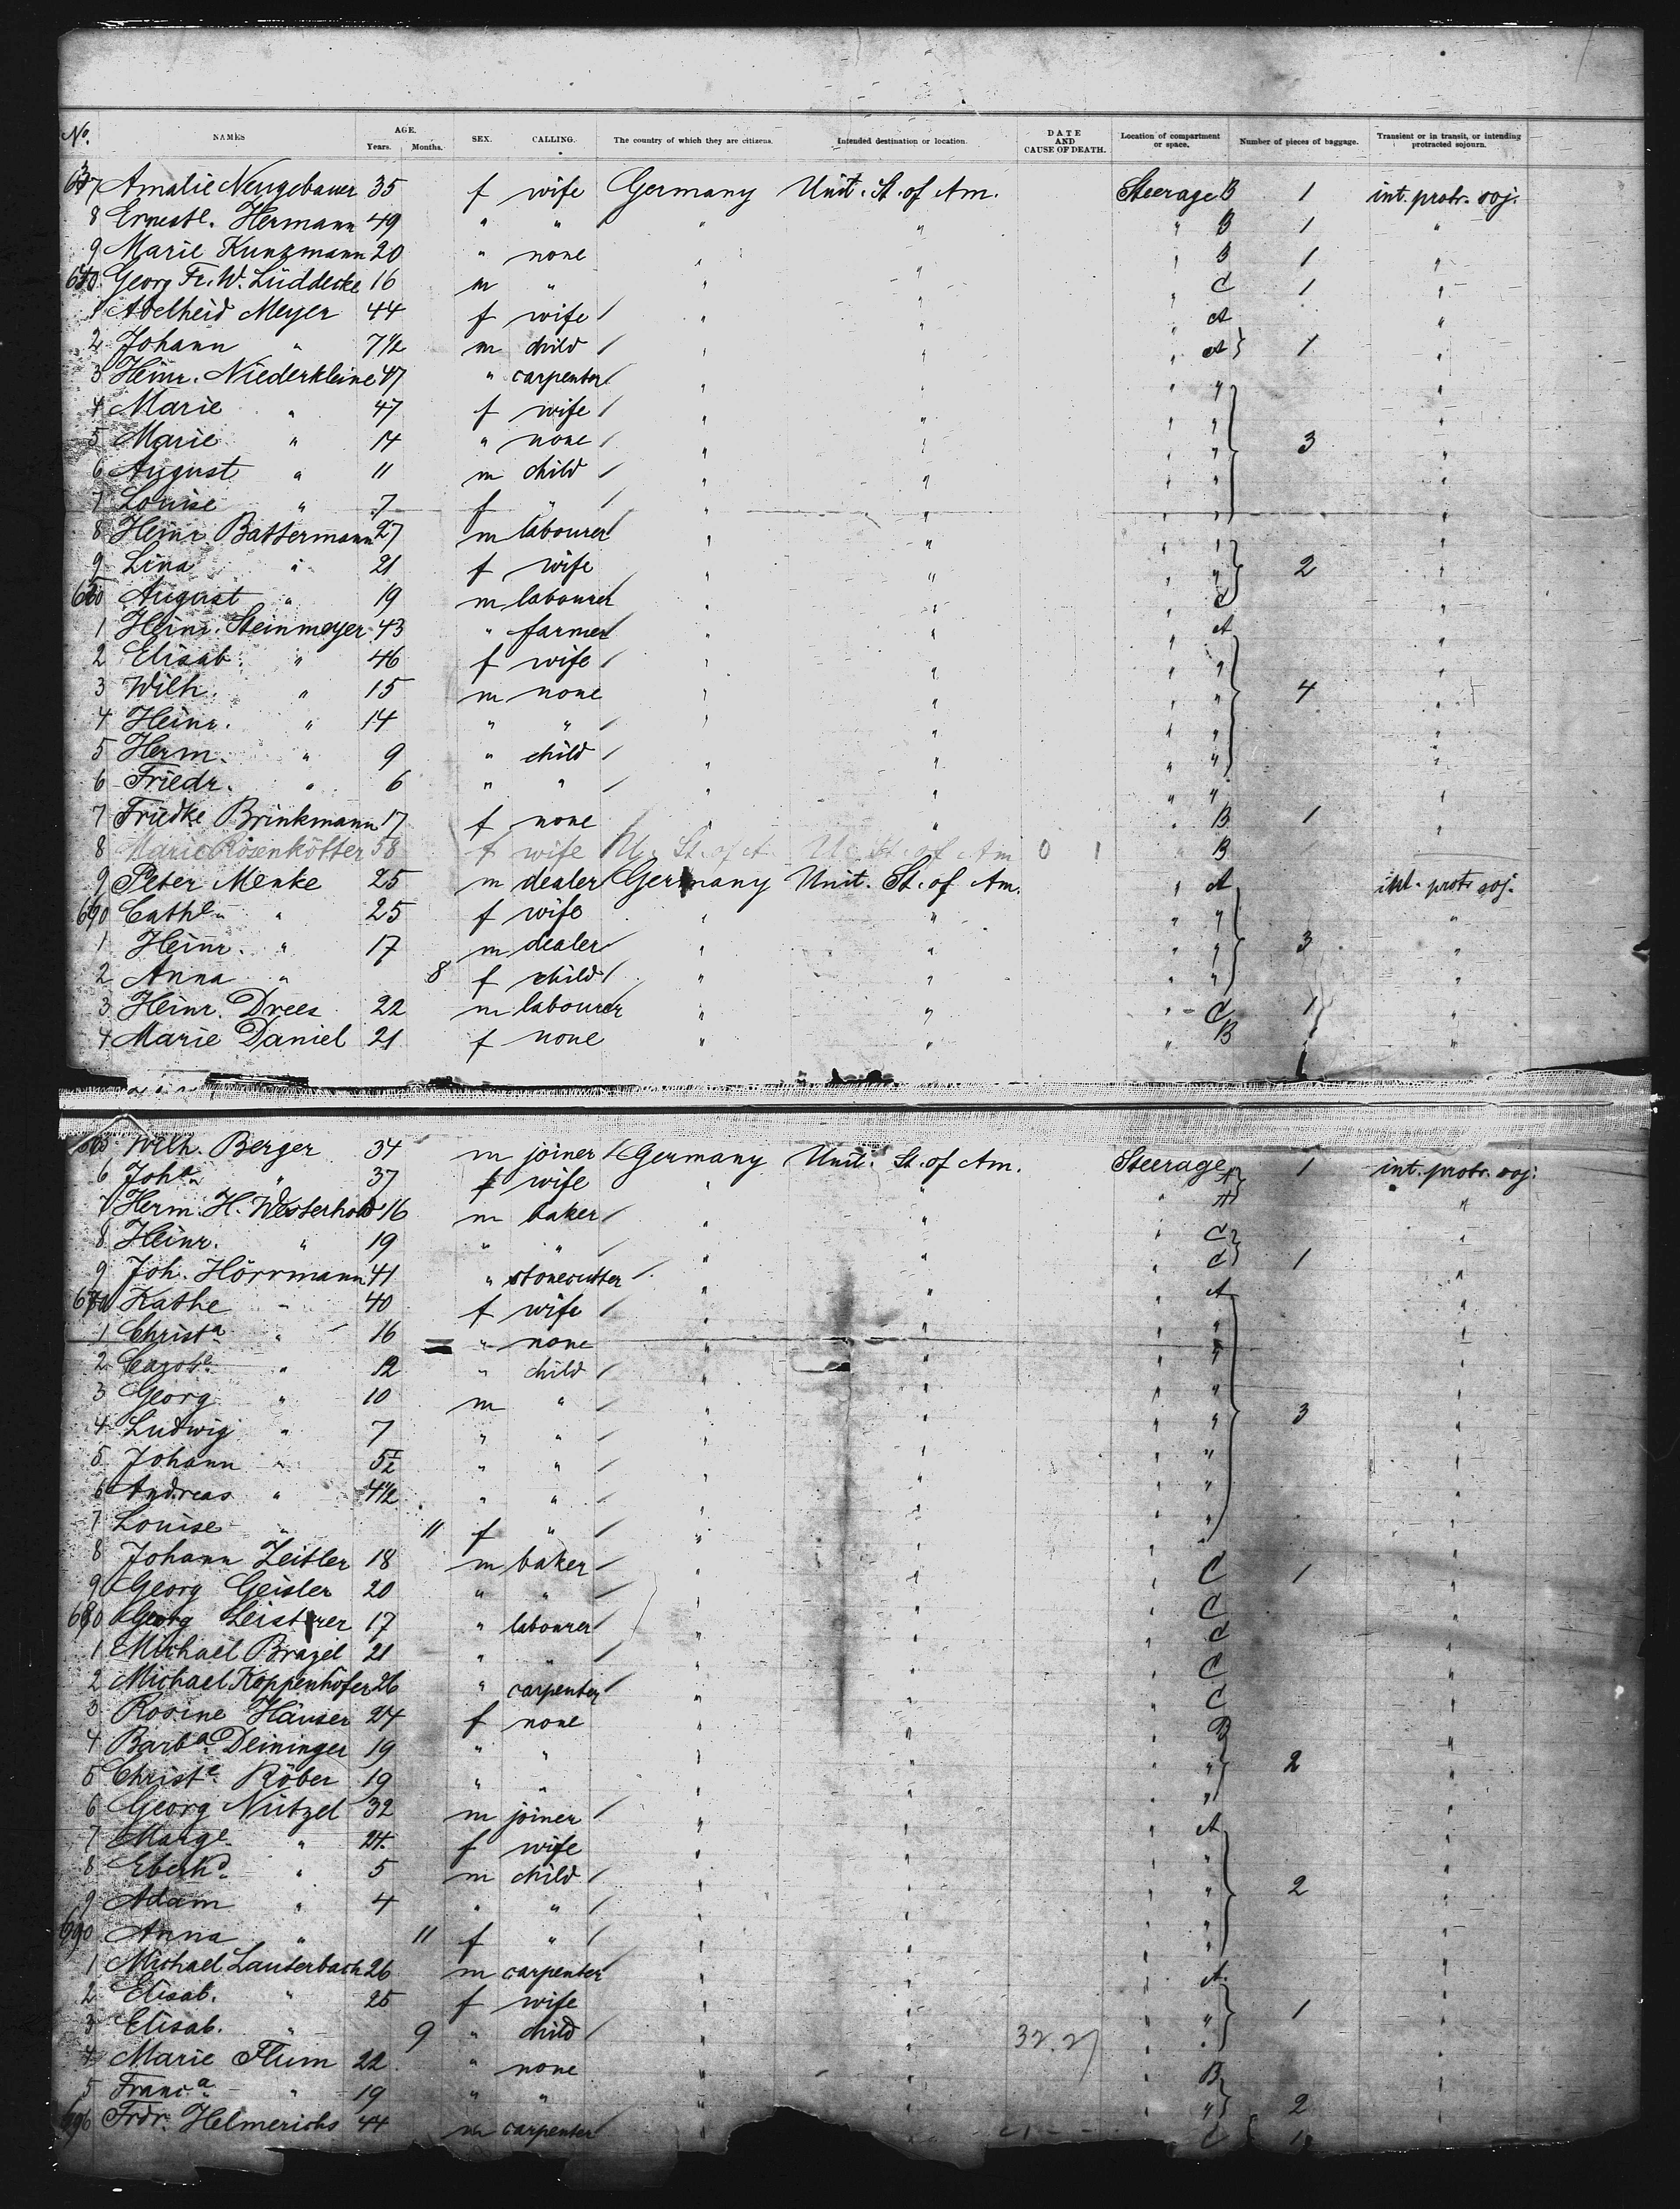 No. NAMES AGE. Years. Months. SEX. CALLING. The country of which they are citizens. Intended destination or location. DATE AND CAUSE OF DEATH. Location of compartment or space. Number of pieces of baggage. Transient or in transit, or intending protracted sojourn.
637 Amalie Neugebauer 35 f wife Germany Unit. St. of Am. Steerage B 1 int. protr. soj.
8 Ernestе. Hermann 49 " " " " " B 1 "
9 Marie Kunzmann 20 " none " " " B 1 "
640 Georg Fr. W. Lüddecke 16 m " " " " C 1 "
1 Adelheid Meyer 44 f wife " " " A "
2 Johann " 7 1/2 m child " " " A 1 "
3 Heinr. Niederkleine 47 " carpenter " " " " "
4 Marie " 47 f wife " " " " "
5 Marie " 14 " none " " " " 3 "
6 August " 11 m child " " " " "
7 Louise " 7 f " " " " " "
8 Heinr. Battermann 27 m labourer " " " " "
9 Lina " 21 f wife " " " " 2 "
650 August " 19 m labourer " " " C "
1 Heinr. Steinmeyer 43 " farmer " " " A "
2 Elisab. " 46 f wife " " " " "
3 Wilh. " 15 m none " " " " 4 "
4 Heinr. " 14 " " " " " " "
5 Herm. " 9 " child " " " " "
6 Friedr. " 6 " " " " " " "
7 Friedke Brinkmann 17 f none " " " B 1 "
8 Marie Rosenkötter 58 f wife U. St. of A. U. St. of Am 0 1 " B
9 Peter Menke 25 m dealer Germany Unit. St. of Am. " A int. protr. soj.
690 Cathe. " 25 f wife " " " " "
1 Heinr. " 17 m dealer " " " " 3 "
2 Anna " 8 f child " " " " "
3 Heinr. Drees 22 m labourer " " " C 1 "
4 Marie Daniel 21 f none " " " B "
Wilh. Berger 34 m joiner Germany Unit. St. of Am. Steerage A 1 int. protr. soj.
6 Joha. " 37 f wife " " " A "
7 Herm. H. Westerhold 16 m baker " " " C "
8 Heinr. " 19 " " " " " C 1 "
9 Joh. Hörrmann 41 " stonecutter " " " A "
670 Kathe " 40 f wife " " " " "
1 Christa " 16 " none " " " " "
2 " 12 " child " " " " "
3 Georg " 10 m " " " " " 3 "
4 Ludwig " 7 " " " " " " "
5 Johann " 5 1/2 " " " " " " "
6 Andreas " 4 1/2 " " " " " " "
7 Louise " 11 f " " " " "
8 Johann Zeitler 18 m baker " " " C 1 "
9 Georg Geisler 20 " " " " " C "
680 Georg Leistner 17 " labourer " " " C "
1 Michael Brazel 21 " " " " " C "
2 Michael Koppenhöfer 26 " carpenter " " " C "
3 Rosine Häuser 24 f none " " B "
4 Barba. Deininger 19 " " " " " " 2 "
5 Christe. Röber 19 " " " " " "
6 Georg Nützel 32 m joiner " " " A "
7 Marge. " 24. f wife " " " " "
8 Eberhd. " 5 m child " " " " 2 "
9 Adam " 4 " " " " " "
690 Anna " 11 f " " " " "
1 Michael Lauterbach 26 m carpenter " " " A. "
2 Elisab. " 25 f wife " " " " 1 "
3 Elisab. " 9 " child " " " " "
4 Marie Flum 22 " none " " " B "
5 Franca. " 19 " " " " " " 2 "
696 Frdr. Helmerichs 44 m carpenter " " " C 1 "